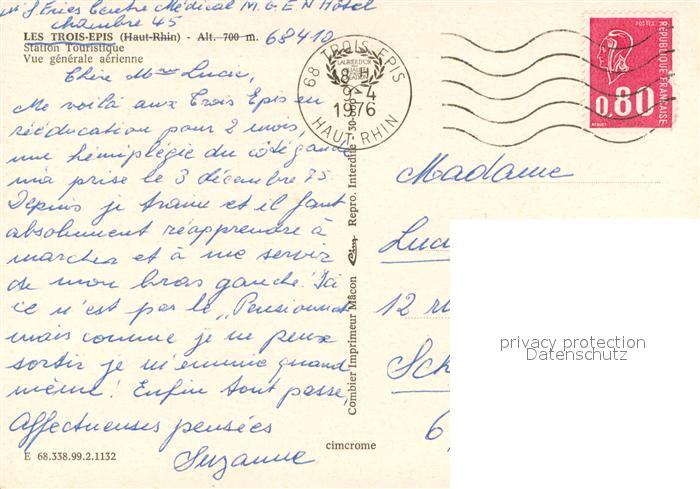 S. Epics Centre Médical M.G.E.N Hôtel
Chambre 45
LES TROIS-EPIS (Haut-Rhin) - Alt. 700 m. 68410
Station Touristique
Vue générale aérienne
Chère Mme Lucie,
Me voilà aux Trois Epis en
rééducation pour 2 mois,
une hémiplégie du côté gauche
m'a prise le 3 décembre 75.
Depuis je traine et il faut
absolument réapprendre à
marcher et à me servir
de mon bras gauche! Ici
ce n'est pas le "Pensionnat"
mais comme je ne peux
sortir je m'ennuie quand
même! Enfin tout passe,
Affectueuses pensées
Suzanne
E 68.338.99.2.1132
cimcrome
Combier Imprimeur Mâcon Cim Repro. Interdite
68 TROIS-EPIS
18H
9-4
1976
HAUT-RHIN
POSTES
REPUBLIQUE FRANCAISE
0,80
Madame
Luci
12 ru
Sch
6
privacy protection
Datenschutz